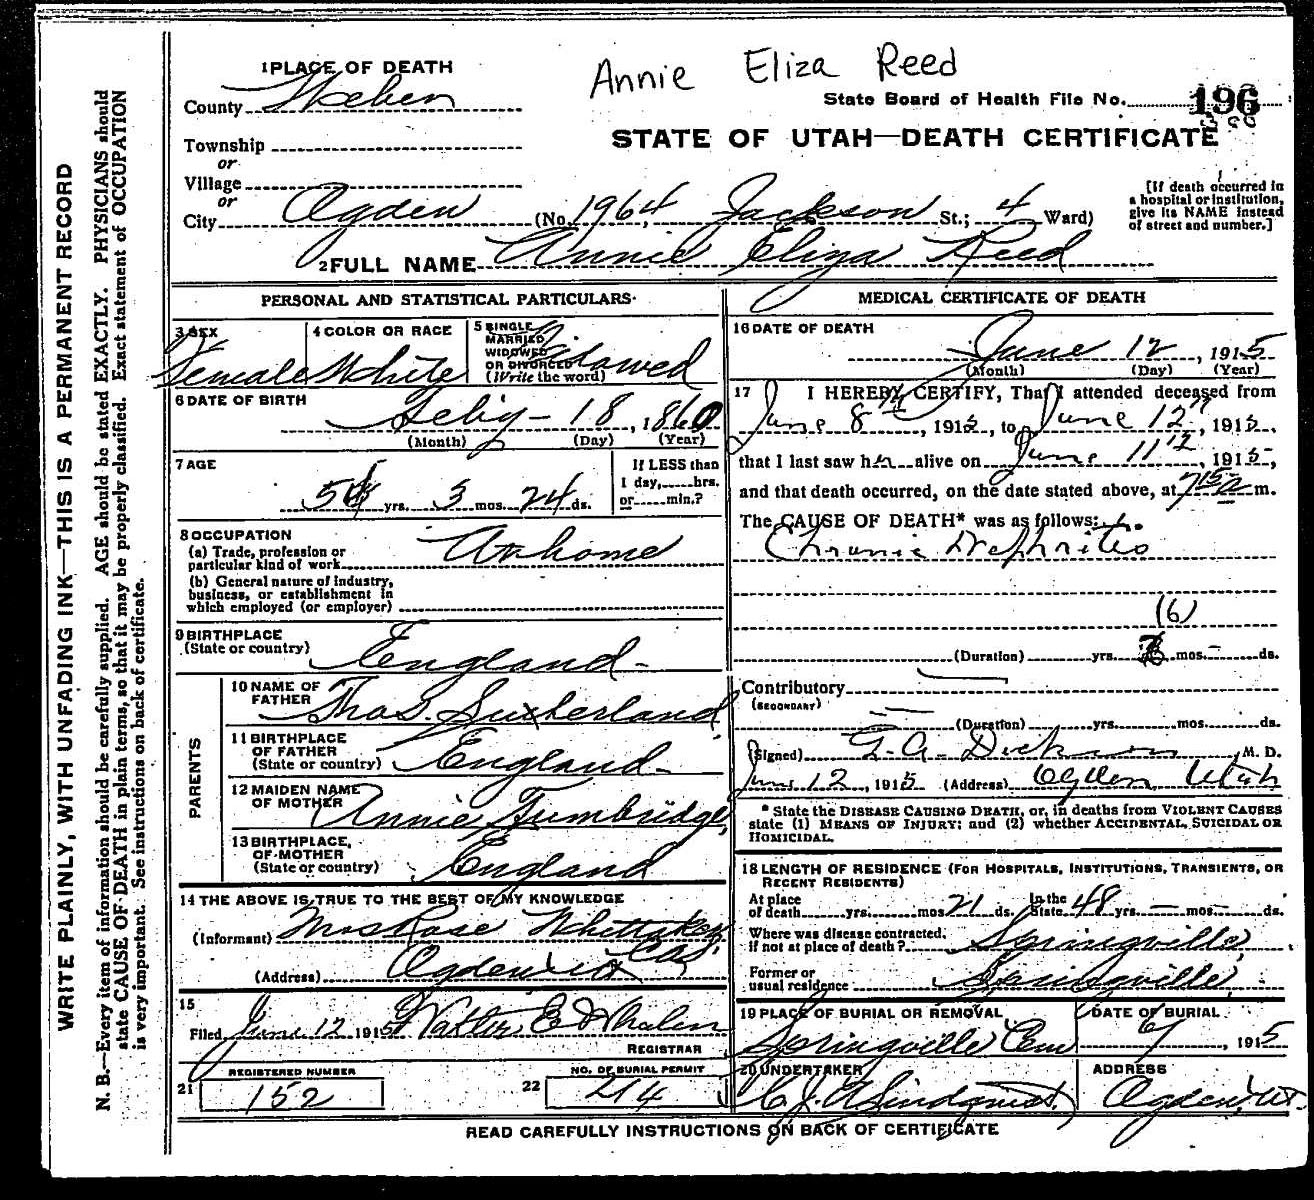 Annie Eliza Reed
1 PLACE OF DEATH
County Weber
State Board of Health File No. 196
STATE OF UTAH—DEATH CERTIFICATE
Township
or
Village
or
City Ogden (No. 1964 Jackson St.; 4 Ward)
[If death occurred in
a hospital or institution,
give its NAME instead
of street and number.]
2 FULL NAME Annie Eliza Reed
PERSONAL AND STATISTICAL PARTICULARS
3 SEX
Female
4 COLOR OR RACE
White
5 SINGLE
MARRIED
WIDOWED
OR DIVORCED
(Write the word)
Widowed
6 DATE OF BIRTH
Feby - 18, 1860
(Month) (Day) (Year)
7 AGE
yrs. 3 mos. 24 ds.
If LESS than
1 day, hrs.
or min.?
8 OCCUPATION
(a) Trade, profession or
particular kind of work At home
(b) General nature of industry,
business, or establishment in
which employed (or employer)
9 BIRTHPLACE
(State or country) England -
PARENTS
10 NAME OF
FATHER Thos. Sutherland
11 BIRTHPLACE
OF FATHER
(State or country) England -
12 MAIDEN NAME
OF MOTHER Annie
13 BIRTHPLACE,
OF MOTHER
(State or country) England
14 THE ABOVE IS TRUE TO THE BEST OF MY KNOWLEDGE
(Informant) Mrs Rose Whittaker
(Address) Ogden
15
Filed June 12 1915 Walter E Whalen
REGISTRAR
21 REGISTERED NUMBER
152
22 NO. OF BURIAL PERMIT
214
MEDICAL CERTIFICATE OF DEATH
16 DATE OF DEATH
June 12, 1915
(Month) (Day) (Year)
17 I HEREBY CERTIFY, That I attended deceased from
June 8th, 1915, to June 12", 1915,
that I last saw her alive on June 11, 1915,
and that death occurred, on the date stated above, at 7 15 a m.
The CAUSE OF DEATH* was as follows:
Chronic Nephritis
(6)
(Duration) yrs. mos. - ds.
Contributory
(SECONDARY)
(Duration) yrs. mos. ds.
(Signed) G. A. Dickson M. D.
June 12, 1915 (Address) Ogden Utah
* State the DISEASE CAUSING DEATH, or, in deaths from VIOLENT CAUSES
state (1) MEANS OF INJURY; and (2) whether ACCIDENTAL, SUICIDAL OR
HOMICIDAL.
18 LENGTH OF RESIDENCE (FOR HOSPITALS, INSTITUTIONS, TRANSIENTS, OR
RECENT RESIDENTS)
At place
of death yrs. mos. 21 ds. In the
State 48 yrs. — mos. — ds.
Where was disease contracted,
if not at place of death? Springville,
Former or
usual residence Springville,
19 PLACE OF BURIAL OR REMOVAL
Springville Cem
DATE OF BURIAL
, 1915
20 UNDERTAKER
C. J. A Lindquist
ADDRESS
Ogden, Ut.
READ CAREFULLY INSTRUCTIONS ON BACK OF CERTIFICATE
WRITE PLAINLY, WITH UNFADING INK—THIS IS A PERMANENT RECORD
N. B.—Every item of information should be carefully supplied. AGE should be stated EXACTLY. PHYSICIANS should
state CAUSE OF DEATH in plain terms, so that it may be properly classified. Exact statement of OCCUPATION
is very important. See instructions on back of certificate.